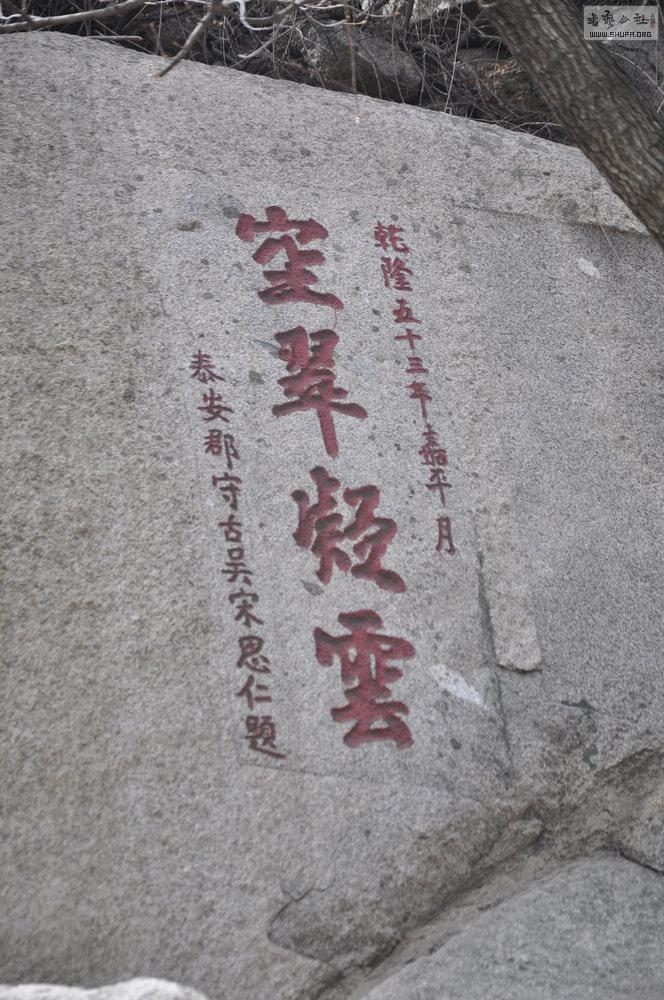 乾隆五十三年嘉平月
空翠凝雲
泰安郡守古吴宋思仁題
书艺公社
WWW.SHUFA.ORG